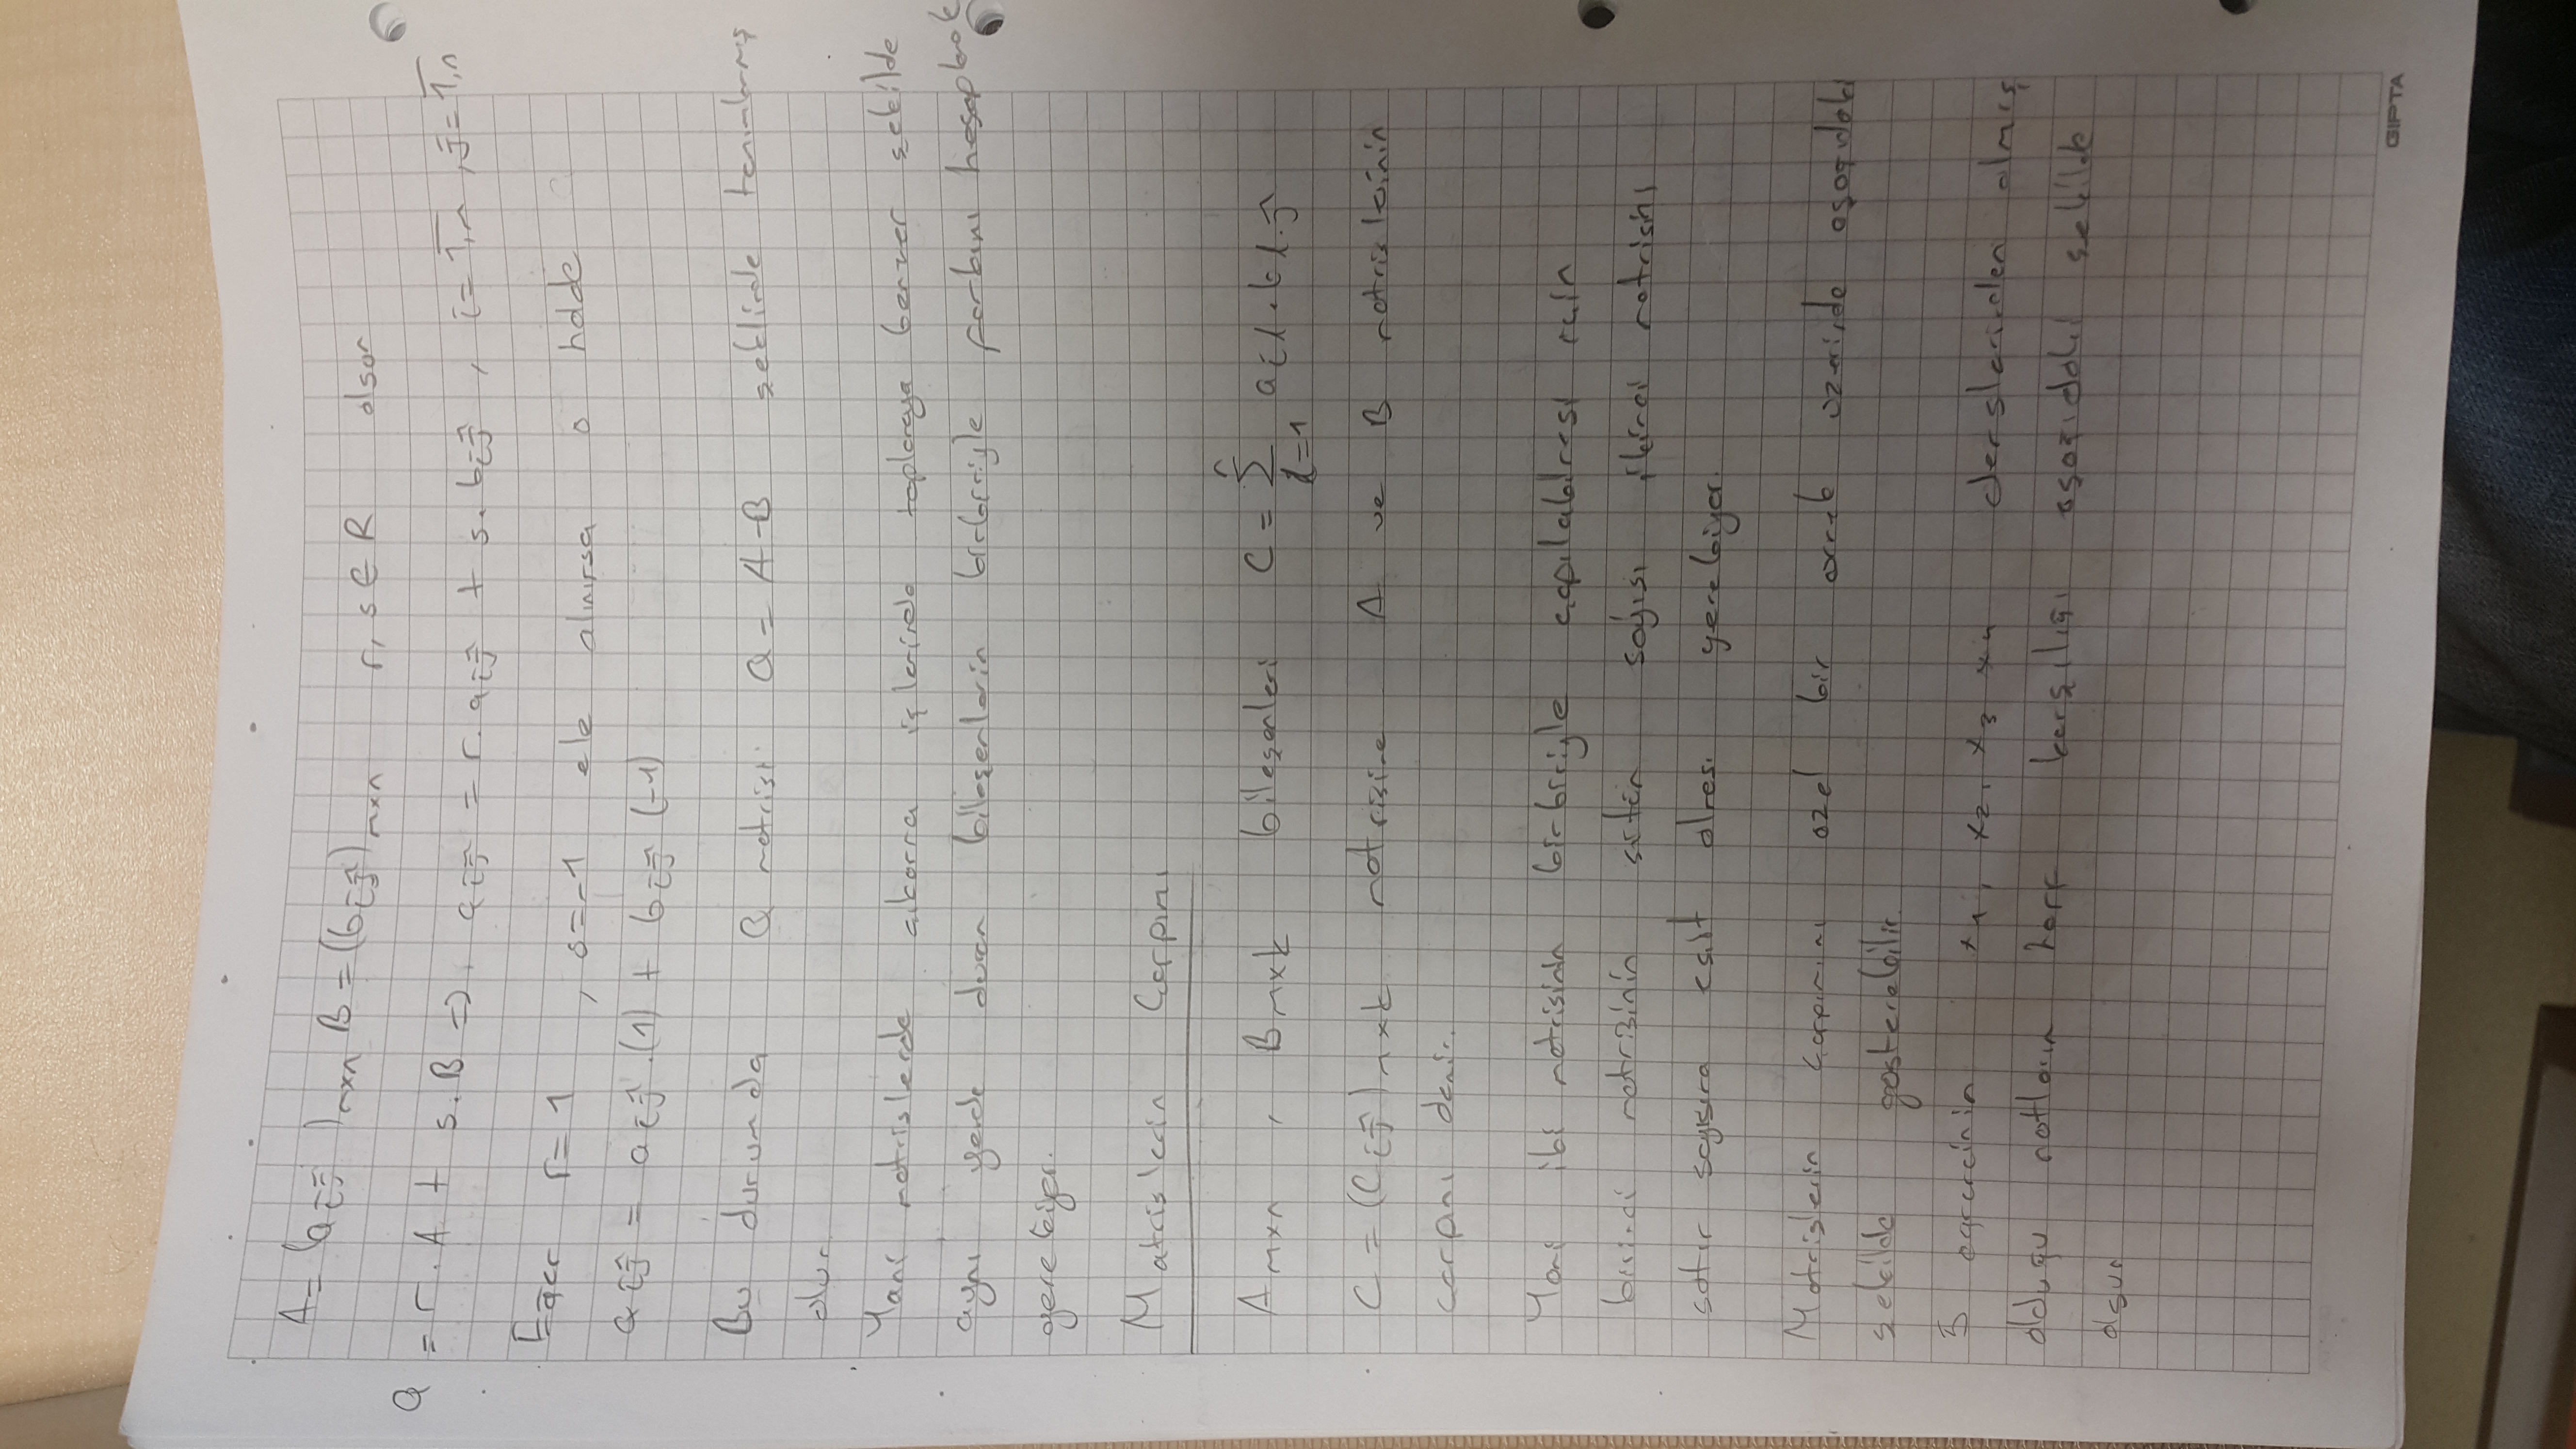 A = (aij)mxn B = (bij)mxn r, s ∈ R olsun
Q = r.A + s.B => qij = r.aij + s.bij , i = 1,m , j = 1,n
Eğer r = 1 , s = -1 ele alınırsa o halde
qij = aij.(1) + bij (-1)
Bu durumda Q matrisi Q = A-B şeklinde tanımlanmış
olur.
Yani matrislerde çıkarma işleminde toplamaya benzer şekilde
aynı yerde duran bileşenlerin birbiriyle farkını hesaplamak
gerekiyor.
Matrislerin Çarpımı
Amxn , Bnxk bileşenleri C = n∑l=1 ail.bl.j
C = (Cij)mxk matrisine A ve B matrislerinin
çarpımı denir.
Yani iki matrisinin birbiriyle çarpılabilmesi için
birinci matrisinin sütün sayısı ikinci matrisini
satır sayısına eşit olması gerekiyor.
Matrislerin çarpımını özel bir örnek üzerinde aşağıdaki
şekilde gösterebilir.
5 öğrencinin x1, x2, x3 x4 derslerinden almış
olduğu notların harf karşılığı aşağıdaki şekilde
olsun
GIPTA